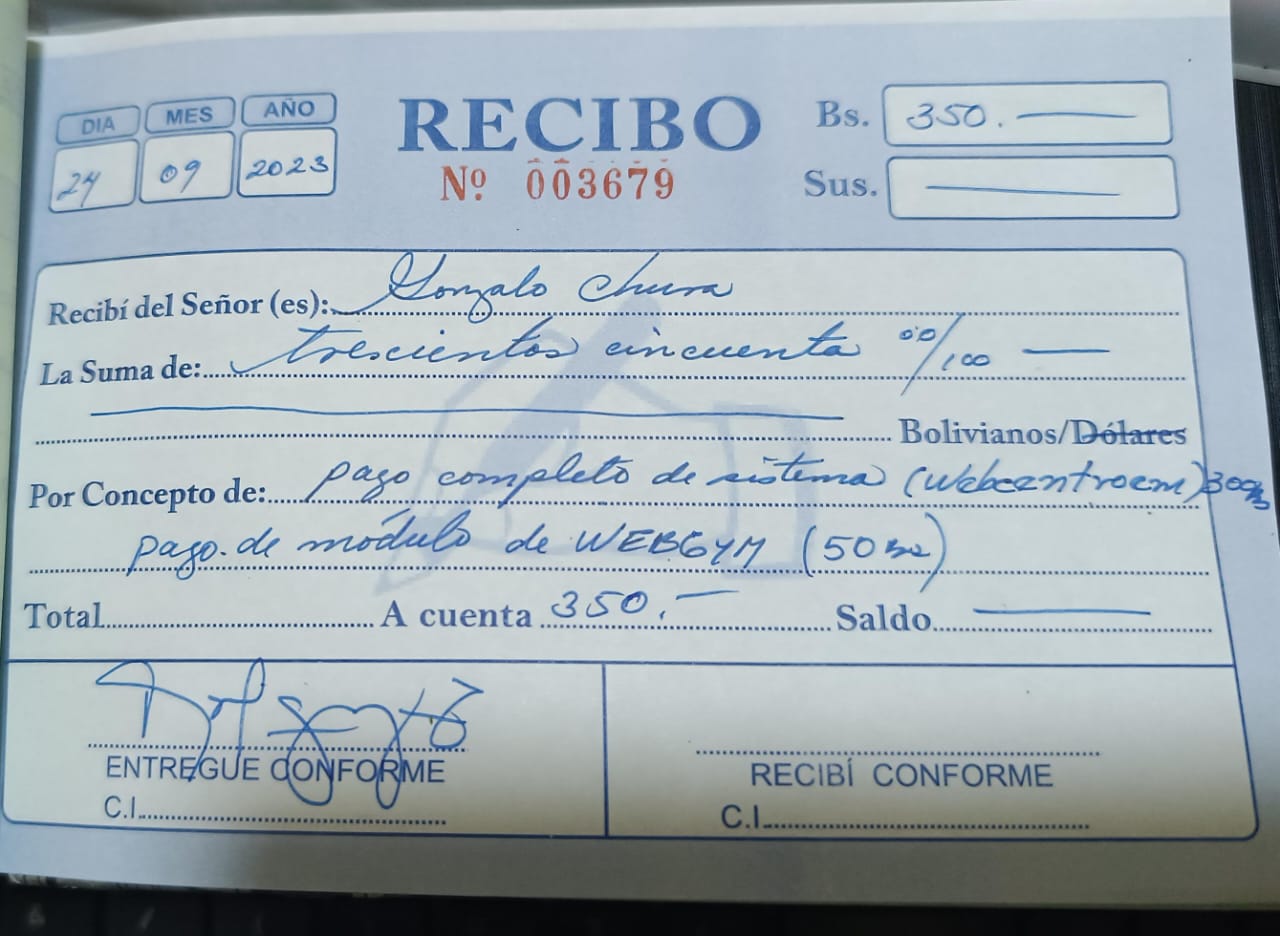 DIA MES AÑO
24 09 2023
RECIBO
Nº 003679
Bs. 350.
Sus.
Recibí del Señor (es): Gonzalo Chura
La Suma de: trescientos cincuenta 00/100
Bolivianos/Dólares
Por Concepto de: pago completo de sistema (webcentroem) 300Bs
pago. de módulo de WEBGYM (50 Bs)
Total A cuenta 350. Saldo
ENTREGUE CONFORME
C.I.
RECIBÍ CONFORME
C.I.